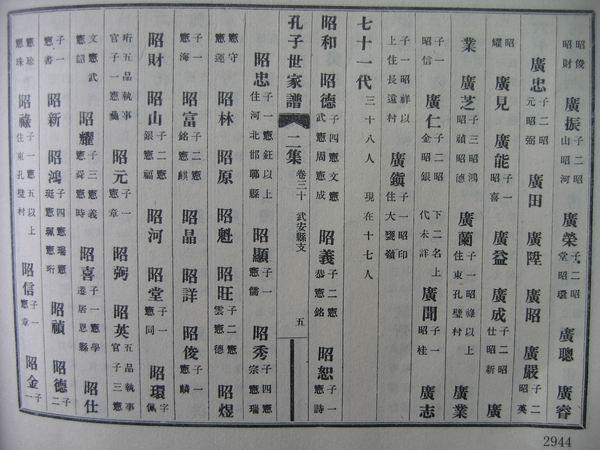 昭俊昭財 廣振 子二昭山昭河 廣榮 子二昭堂昭環 廣聰 廣睿
廣忠 子二昭元昭弼 廣田 廣陞 廣昭 廣嚴 子二昭英
昭耀 廣見 廣能 子一昭喜 廣益 廣成 子二昭仕昭新 廣
業 廣芝 子三昭鴻昭禎昭德 廣蘭 子一昭祿以上住東孔璧村 廣業
子一昭信 廣仁 子二昭金昭銀 下二名上代未詳 廣聞 子一昭桂 廣志
子一昭祥以上住長遠村 廣鎮 子一昭印住大甕嶺
七十一代 三十八人 現在十七人
昭和 昭德 子四憲文憲武憲周憲成 昭義 子二憲恭憲銘 昭恕 子一憲詩
孔子世家譜 二集 卷三十 武安縣支 五
昭忠 子一憲鈺以上住河北邯鄲縣 昭顯 子一憲儒 昭秀 子四憲宗憲瑞
憲守憲蓮 昭林 昭原 昭魁 昭旺 子二憲雲憲德 昭煜
子一憲海 昭富 子二憲銘憲麒 昭晶 昭詳 昭俊 子一憲麟
昭財 昭山 子二憲銀憲福 昭河 昭堂 子一憲同 昭環 字佩
珩五品執事官子一憲彝 昭元 子一憲章 昭弼 昭英 五品執事官子三憲
文憲武憲韶 昭耀 子三憲義憲舜憲時 昭喜 子一憲學遷居恩縣 昭仕
子一憲書 昭新 昭鴻 子四憲瑞憲珽憲珮憲珩 昭禎 昭德 子二
憲珍憲珠 昭祿 子一憲五以上住東孔璧村 昭信 子一憲章 昭金 子一
2944